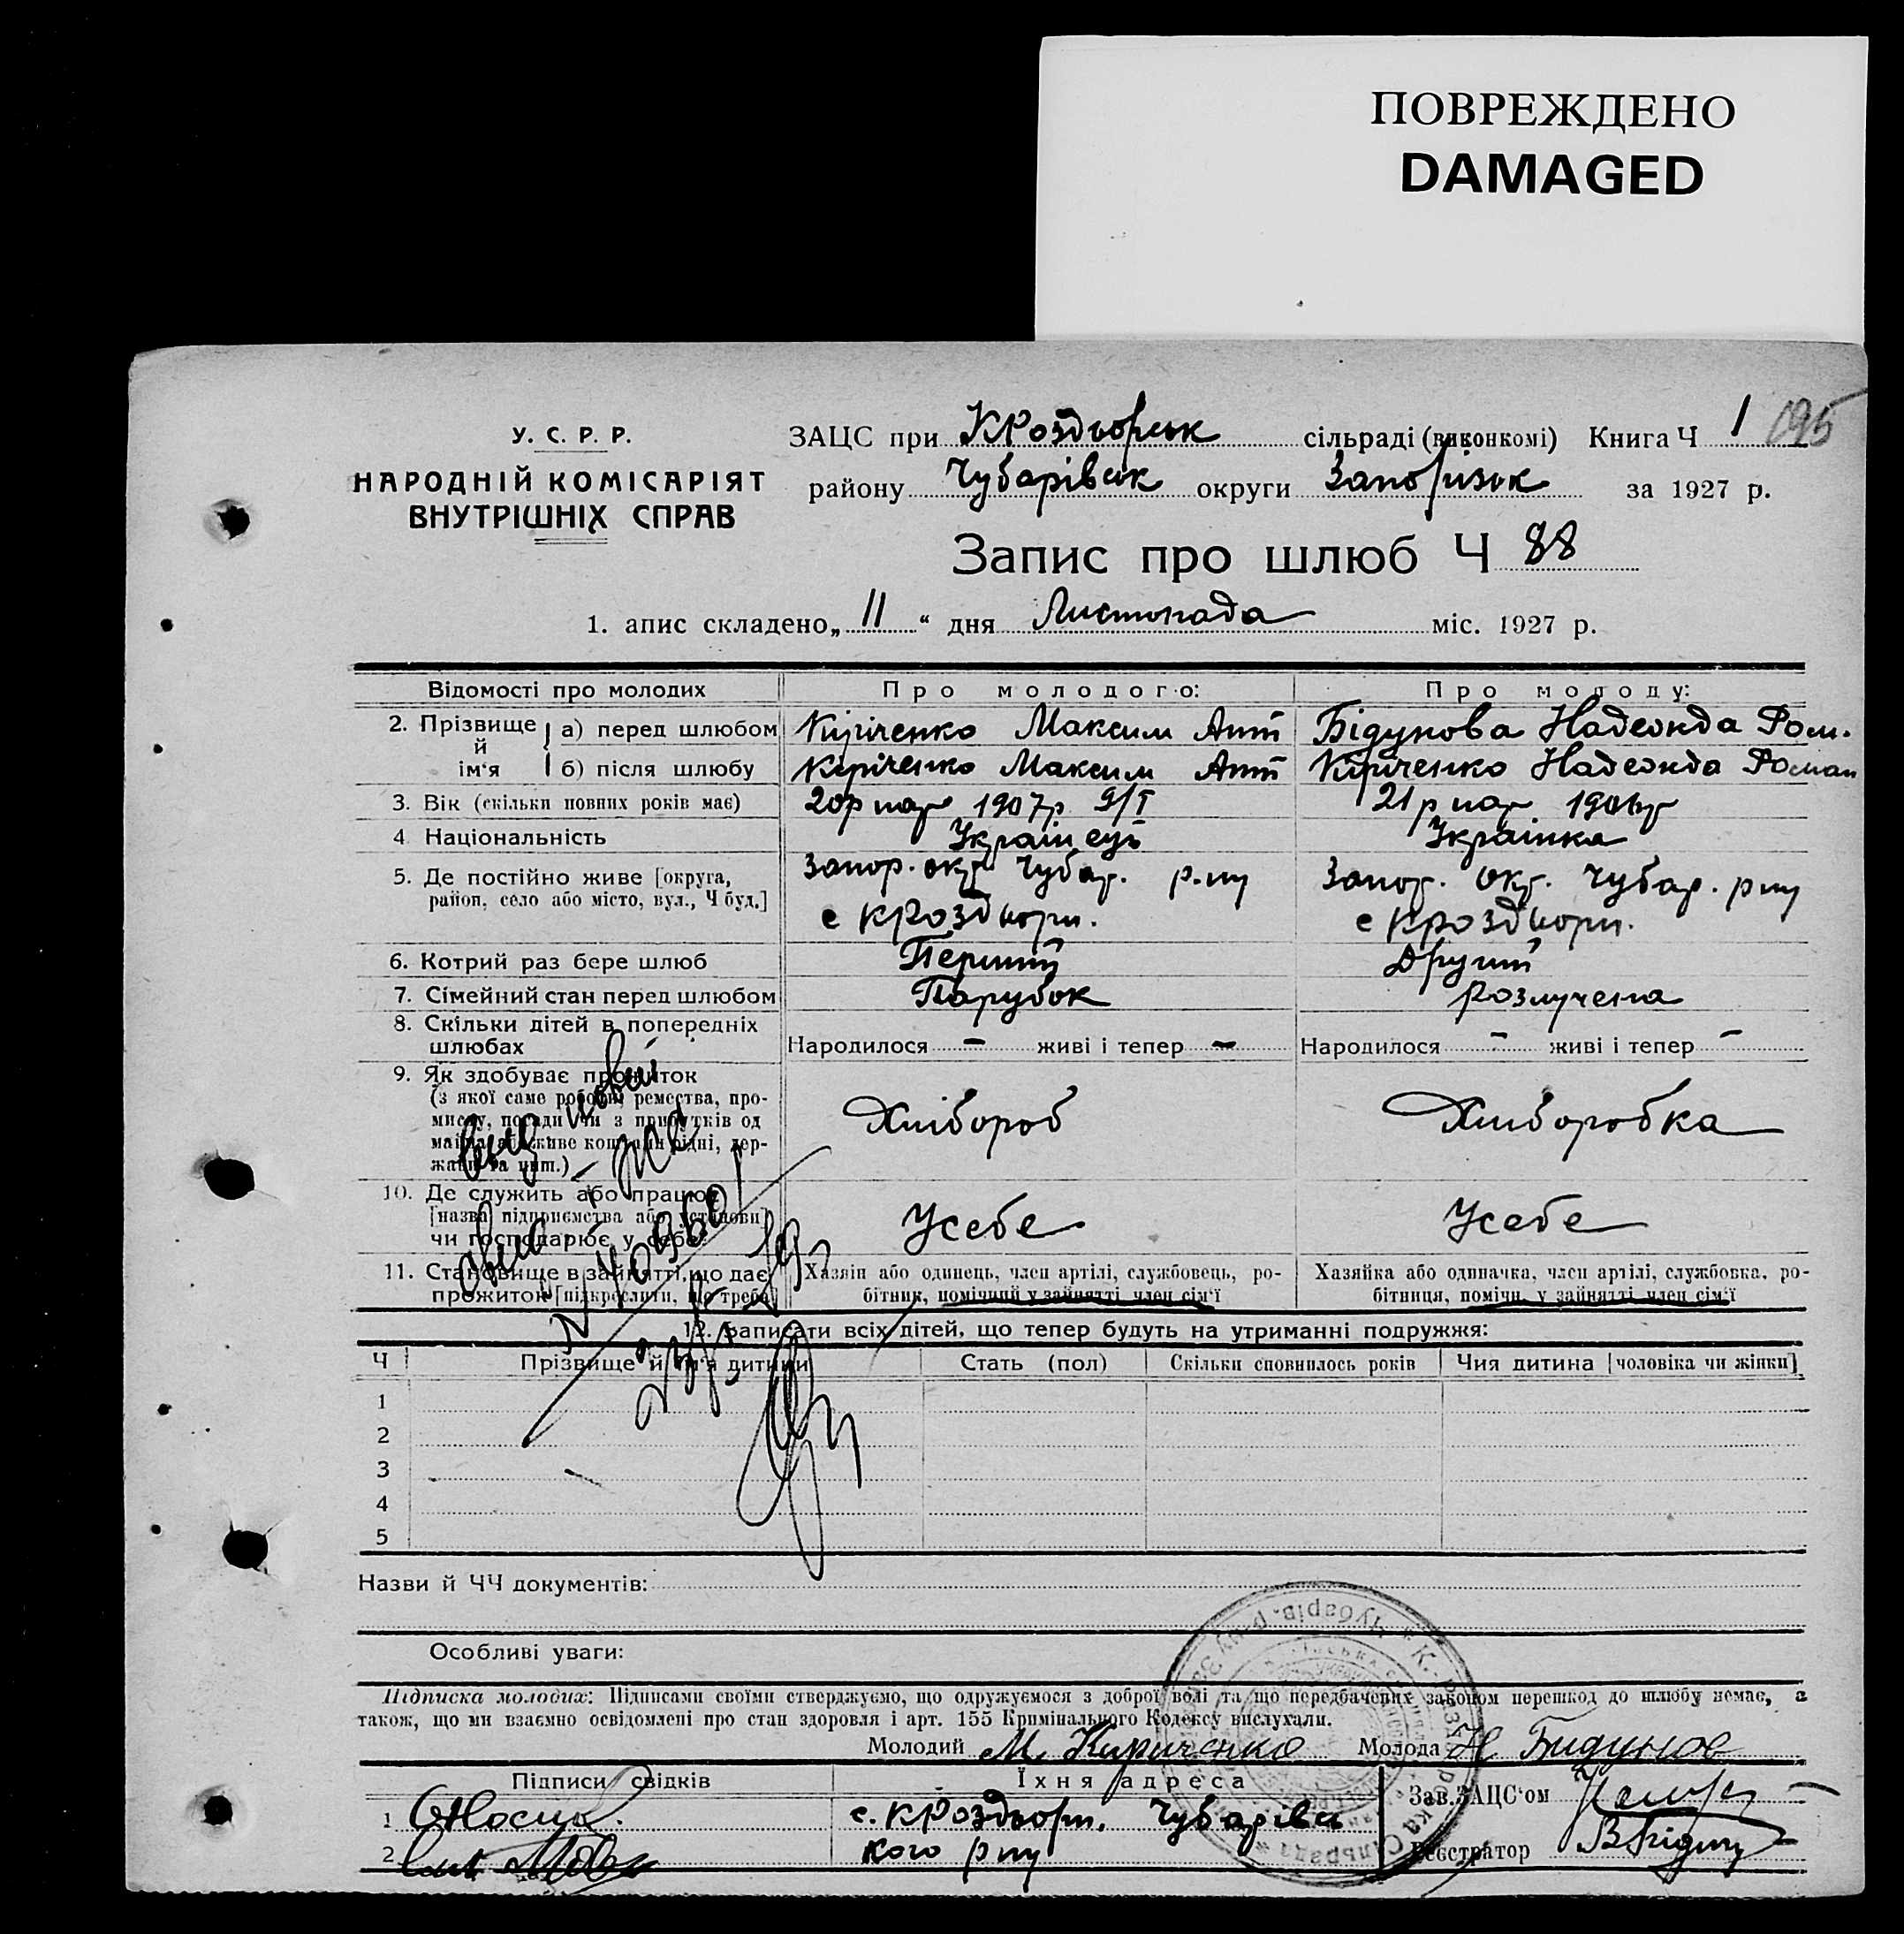 ПОВРЕЖДЕНО
DAMAGED
У. С. Р. Р.
НАРОДНІЙ КОМІСАРІЯТ
ВНУТРІШНІХ СПРАВ
ЗАЦС при КРоздорськ сільраді (виконкомі) Книга Ч 1 195
району Чубарівськ округи Запорізьк за 1927 р.
Запис про шлюб Ч 88
1. апис складено „ 11 “ дня Листопада міс. 1927 р.
Відомості про молодих Про молодого: Про молоду:
2. Прізвище й ім‘я а) перед шлюбом Кіріченко Максим Ант Бідунова Надежда Ром.
б) після шлюбу Кіріченко Максим Ант Кіріченко Надежда Роман
3. Вік (скільки повних років має) 20р нар 1907р 9/I 21р нар 1906р
4. Національність Українець Українка
5. Де постійно живе [округа, район, село або місто, вул., Ч буд.] Запор. окр Чубар. р-ну Запор. окр. Чубар. рну
с КРоздори. с КРоздори.
6. Котрий раз бере шлюб Перший Другий
7. Сімейний стан перед шлюбом Парубок Розлучена
8. Скільки дітей в попередніх шлюбах Народилося – живі і тепер – Народилося – живі і тепер –
9. Як здобуває прожиток
(з якої саме роботи, ремества, про-
мислу, посади чи з прибутків од
майна або живе коштами рідні, дер-
жави та инш.) Хлібороб Хліборобка
10. Де служить або працює
[назва підприємства або установи]
чи господарює у себе: Усебе Усебе
11. Становище в зайнятті, що дає Хазяїн або одинець, член артілі, службовець, ро- Хазяйка або одиначка, член артілі, службовка, ро-
прожиток [підкреслити, що треба] бітник, помічний у зайнятті член сім‘ї бітниця, помічн. у зайнятті член сім‘ї
12. Записати всіх дітей, що тепер будуть на утриманні подружжя:
Ч Прізвище й ім‘я дитини Стать (пол) Скільки сповнилось років Чия дитина [чоловіка чи жінки]
1
2
3
4
5
Назви й ЧЧ документів:
Особливі уваги:
Підписка молодих: Підписами своїми стверджуємо, що одружуємося з доброї волі та що передбачених законом перешкод до шлюбу немає, а
також, що ми взаємно освідомлені про стан здоровля і арт. 155 Кримінального Кодексу вислухали.
Молодий М Кириченко Молода Н Бидунов
Підписи свідків Їхня адреса Зав.ЗАЦС‘ом
1 с. КРоздори. Чубарівсь
2 кого рну Реєстратор